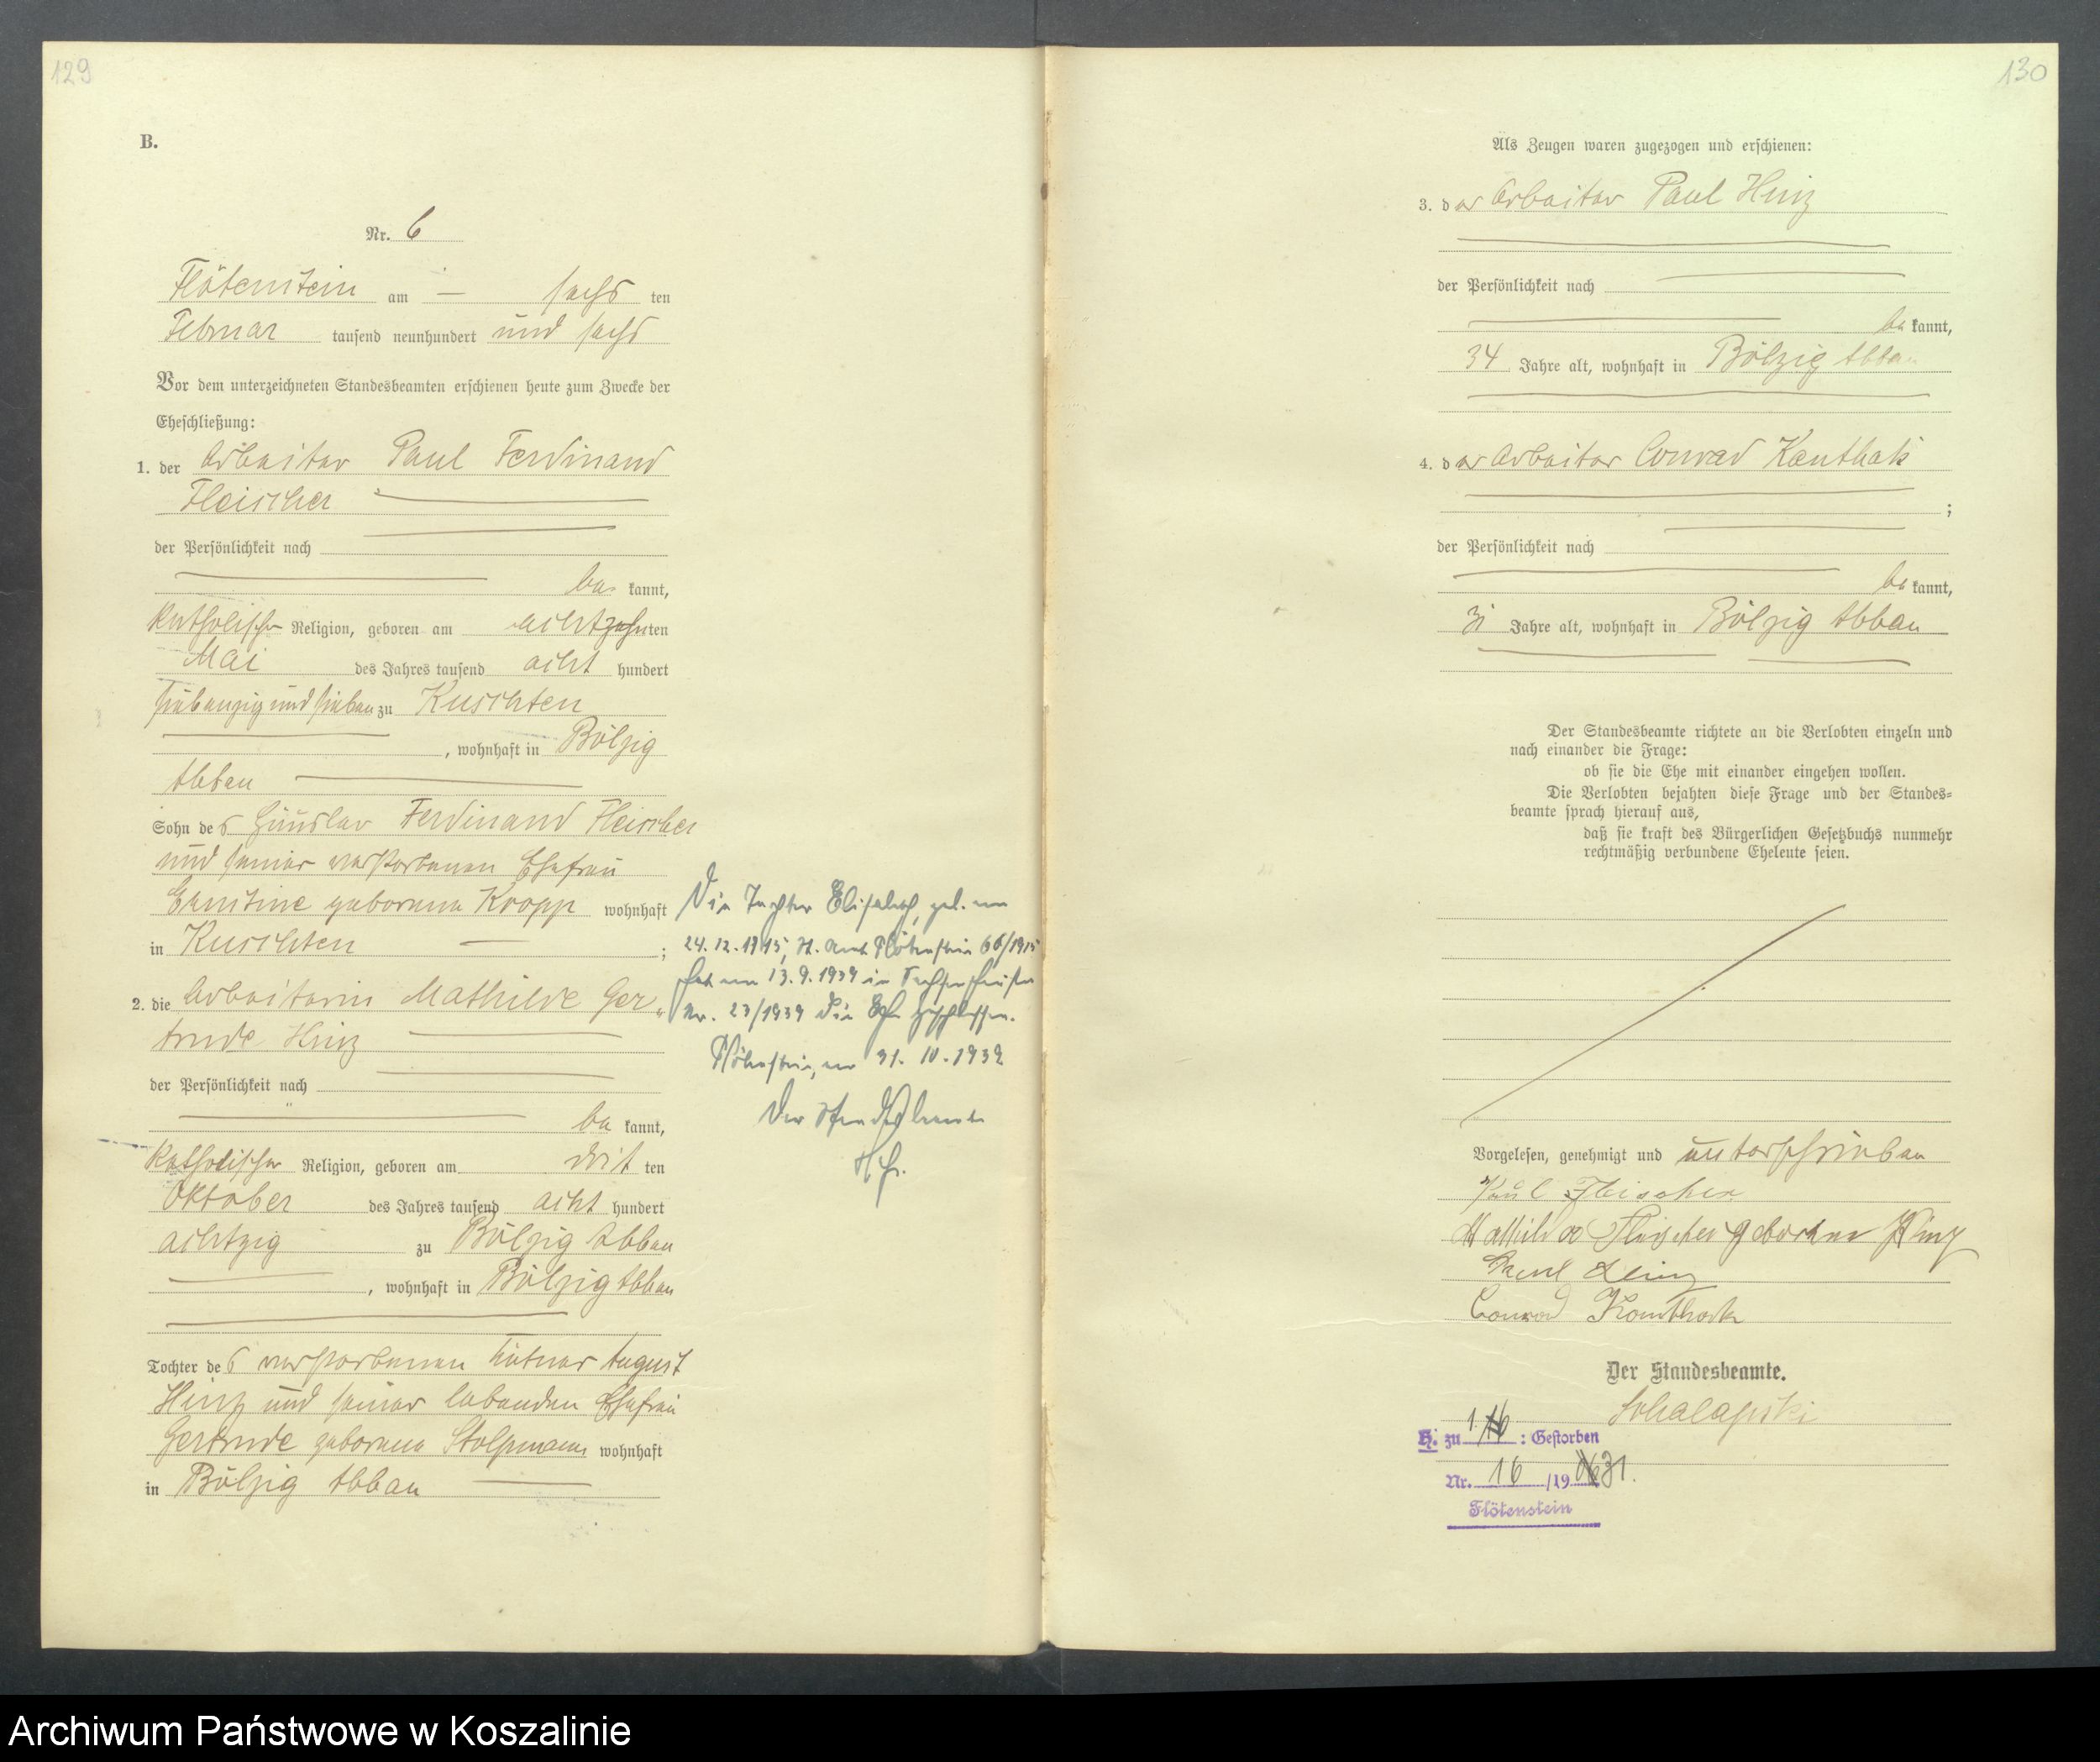 129
B.
Nr. 6
Flötenstein am — sechs ten
Februar tausend neunhundert und sechs
Vor dem unterzeichneten Standesbeamten erschienen heute zum Zwecke der
Eheschließung:
1. der Arbeiter Paul Ferdinand
Fleischer
der Persönlichkeit nach
be kannt,
katholischer Religion, geboren am achtzehnten
Mai des Jahres tausend acht hundert
siebenzig und sieben zu Kuschten
, wohnhaft in Bölzig
Abbau
Sohn des Häusler Ferdinand Fleischer
und seiner verstorbenen Ehefrau
Ernstine geborene Kropp wohnhaft
in Kuschten ;
2. die Arbeiterin Mathilde Ger„
trude Hinz
der Persönlichkeit nach
be kannt,
katholischer Religion, geboren am drit ten
Oktober des Jahres tausend acht hundert
achtzig zu Bölzig Abbau
, wohnhaft in Bölzig Abbau
Tochter des verstorbenen August
Hinz und seiner lebenden Ehefrau
Gertrude geborene Stolpmann wohnhaft
in Bölzig Abbau
Die Tochter Elisabeth, geb. am
24.12.1915, St. Amt Flötenstein 66/1915
hat am 13.9.1939 in
Nr. 23/1939 die Ehe geschlossen.
Flötenstein, am 31. 10. 1939
Der Standesbeamte
130
Als Zeugen waren zugezogen und erschienen:
3. der Arbeiter Paul Hinz
der Persönlichkeit nach
be kannt,
34 Jahre alt, wohnhaft in Bölzig Abbau
4. der Arbeiter Conrad Kanthak
;
der Persönlichkeit nach
be kannt,
31 Jahre alt, wohnhaft in Bölzig Abbau
Der Standesbeamte richtete an die Verlobten einzeln und
nach einander die Frage:
ob sie die Ehe mit einander eingehen wollen.
Die Verlobten bejahten diese Frage und der Standes=
beamte sprach hierauf aus,
daß sie kraft des Bürgerlichen Gesetzbuchs nunmehr
rechtmäßig verbundene Eheleute seien.
Vorgelesen, genehmigt und unterschrieben
Paul Fleischer
Mathilde Fleischer geborene Hinz
Paul Hinz
Conrad Kanthak
Der Standesbeamte.
H. zu 1 : Gestorben
Nr. 16 /19 31.
Flötenstein
Archiwum Państwowe w Koszalinie